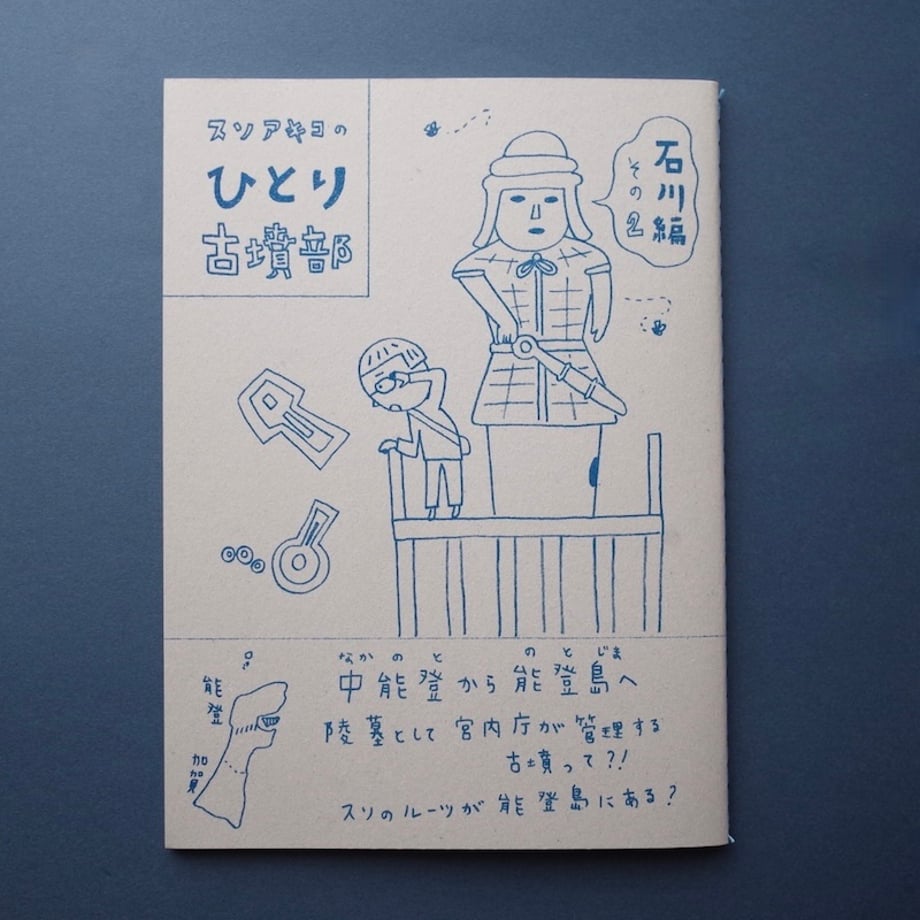 スソアキコの
ひとり
古墳部
石川編
その2
なかのと
のとじま
中能登から能登島へ
陵墓として宮内庁が管理する
古墳って?!
スソのルーツが能登島にある?
能登
加賀